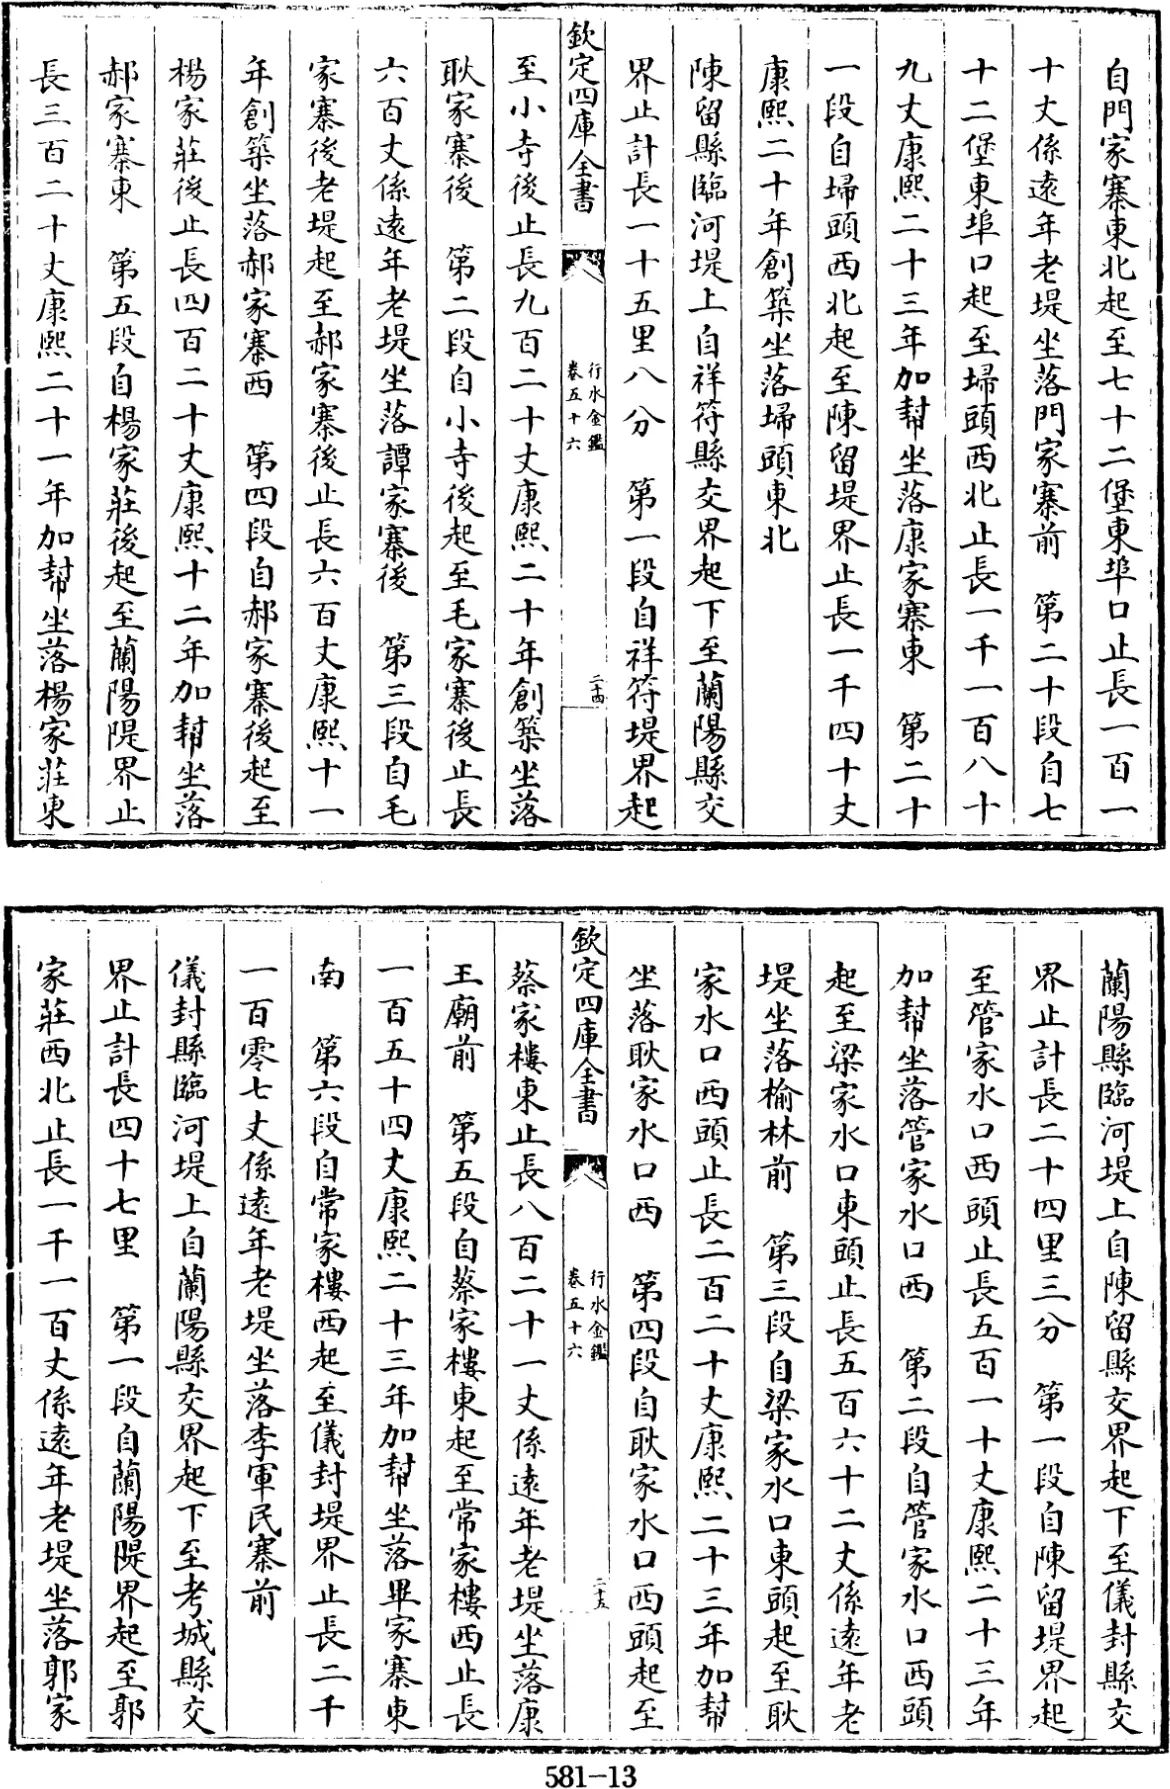 自門家寨東北起至七十二堡東埠口止長一百一
十丈係遠年老堤坐落門家寨前　第二十段自七
十二堡東埠口起至埽頭西北止長一千一百八十
九丈康熙二十三年加幇坐落康家寨東　第二十
一段自埽頭西北起至陳留堤界止長一千四十丈
康熙二十年創築坐落埽頭東北
陳留縣臨河堤上自祥符縣交界起下至蘭陽縣交
界止計長一十五里八分　第一段自祥符堤界起
欽定四庫全書
行水金鑑
卷五十六
二十四
至小寺後止長九百二十丈康熙二十年創築坐落
耿家寨後　第二段自小寺後起至毛家寨後止長
六百丈係遠年老堤坐落譚家寨後　第三段自毛
家寨後老堤起至郝家寨後止長六百丈康熙十一
年創築坐落郝家寨西　第四段自郝家寨後起至
楊家莊後止長四百二十丈康熙十二年加幇坐落
郝家寨東　第五段自楊家莊後起至蘭陽隄界止
長三百二十丈康熙二十一年加幇坐落楊家莊東
蘭陽縣臨河堤上自陳留縣交界起下至儀封縣交
界止計長二十四里三分　第一段自陳留堤界起
至管家水口西頭止長五百一十丈康熙二十三年
加幇坐落管家水口西　第二段自管家水口西頭
起至梁家水口東頭止長五百六十二丈係遠年老
堤坐落榆林前　第三段自梁家水口東頭起至耿
家水口西頭止長二百二十丈康熙二十三年加幇
坐落耿家水口西　第四段自耿家水口西頭起至
欽定四庫全書
行水金鑑
卷五十六
二十五
蔡家樓東止長八百二十一丈係遠年老堤坐落康
王廟前　第五段自蔡家樓東起至常家樓西止長
一百五十四丈康熙二十三年加幇坐落畢家寨東
南　第六段自常家樓西起至儀封堤界止長二千
一百零七丈係遠年老堤坐落李軍民寨前
儀封縣臨河堤上自蘭陽縣交界起下至考城縣交
界止計長四十七里　第一段自蘭陽隄界起至郭
家莊西北止長一千一百丈係遠年老堤坐落郭家
581-13